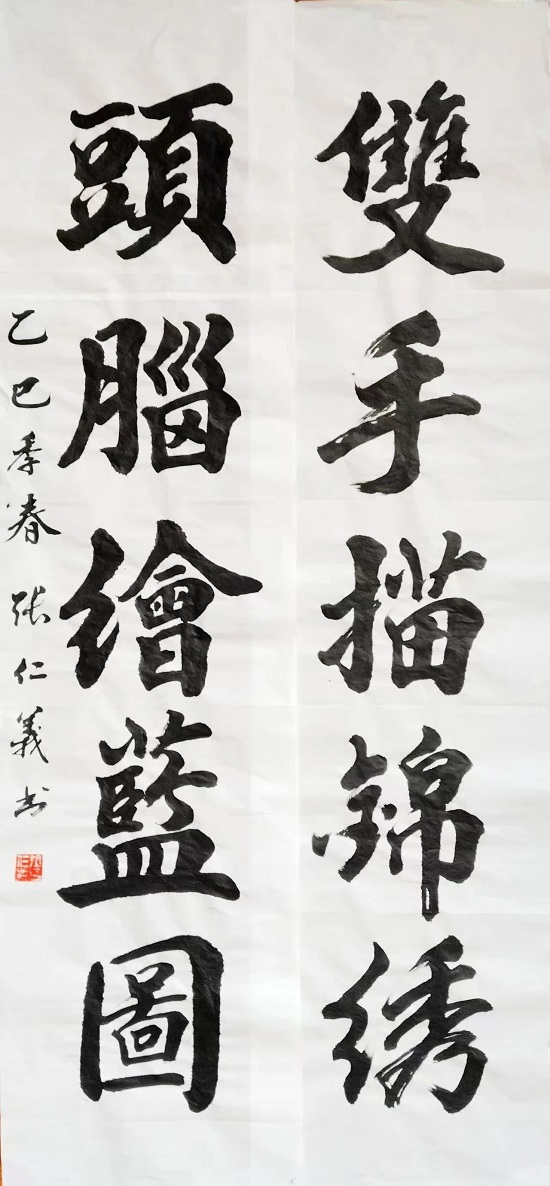 雙手描錦綉
頭腦繪藍圖
乙巳季春 張仁義书